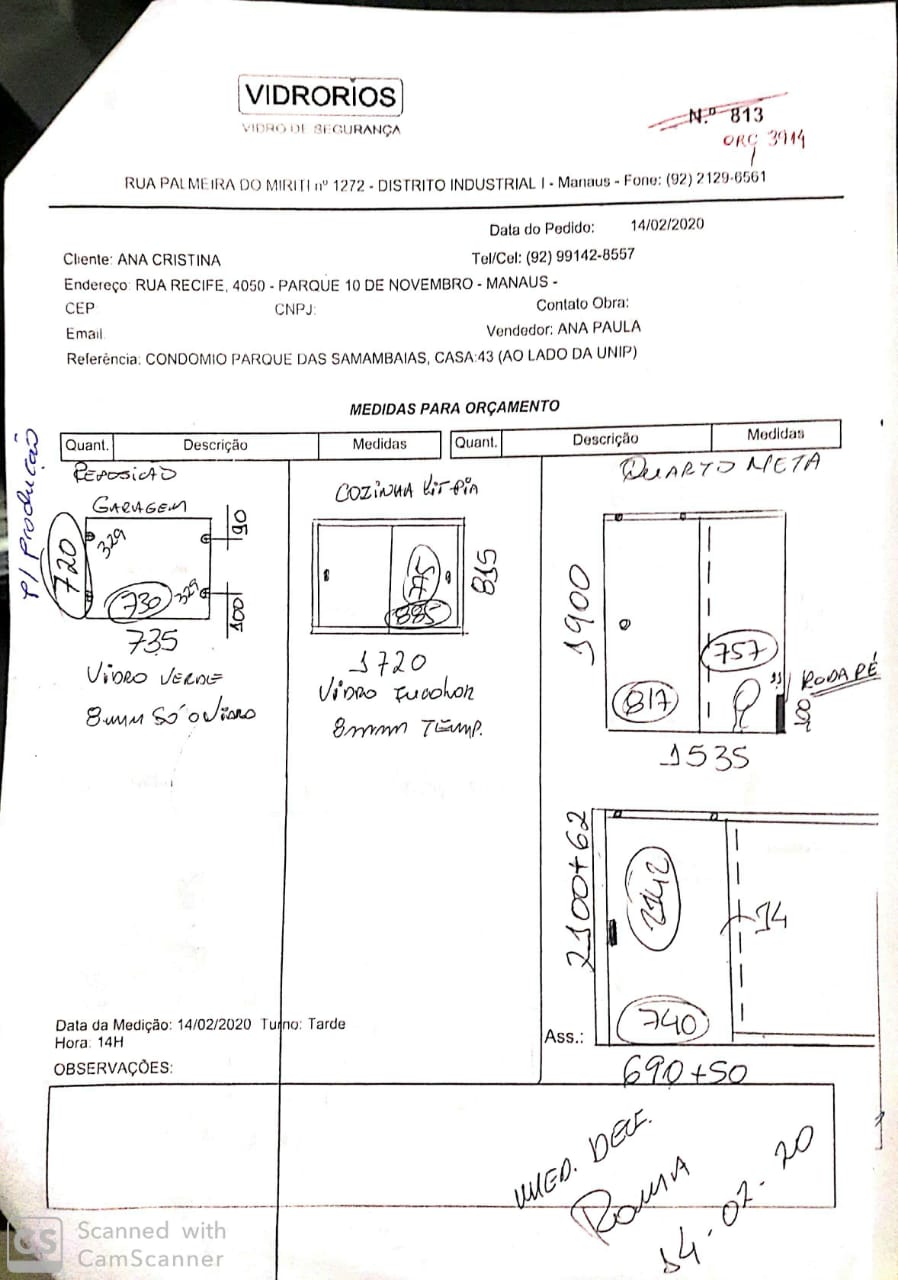 VIDRORIOS
VIDRO DE SEGURANÇA
N.º 813
ORÇ 3914
RUA PALMEIRA DO MIRITI nº 1272 - DISTRITO INDUSTRIAL I - Manaus - Fone: (92) 2129-6561
Data do Pedido: 14/02/2020
Cliente: ANA CRISTINA Tel/Cel: (92) 99142-8557
Endereço: RUA RECIFE, 4050 - PARQUE 10 DE NOVEMBRO - MANAUS -
CEP CNPJ: Contato Obra:
Email Vendedor: ANA PAULA
Referência: CONDOMIO PARQUE DAS SAMAMBAIAS, CASA:43 (AO LADO DA UNIP)
MEDIDAS PARA ORÇAMENTO
Quant. Descrição Medidas Quant. Descrição Medidas
P/ Produção
REPOSICAO
GARAGEM
720
329
90
730
329
100
735
VIDRO VERDE
8mm SÓ O VIDRO
COZINHA KIT PIA
775
885
815
1720
VIDRO INCOLOR
8mm TEMP.
QUARTO NETA
1900
757
817
RODA PÉ
100
1535
2100+62
2142
14
740
690+50
Data da Medição: 14/02/2020 Turno: Tarde
Hora: 14H
Ass.:
OBSERVAÇÕES:
MED. DEF.
14-02-20
CS Scanned with
CamScanner